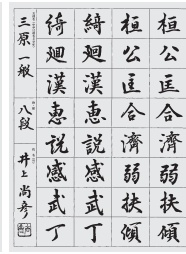 桓公匡合濟弱扶傾
桓公匡合濟弱扶傾
綺廻漢恵説感武丁
綺廻漢恵説感武丁
三原一般
八段
井上尚彦